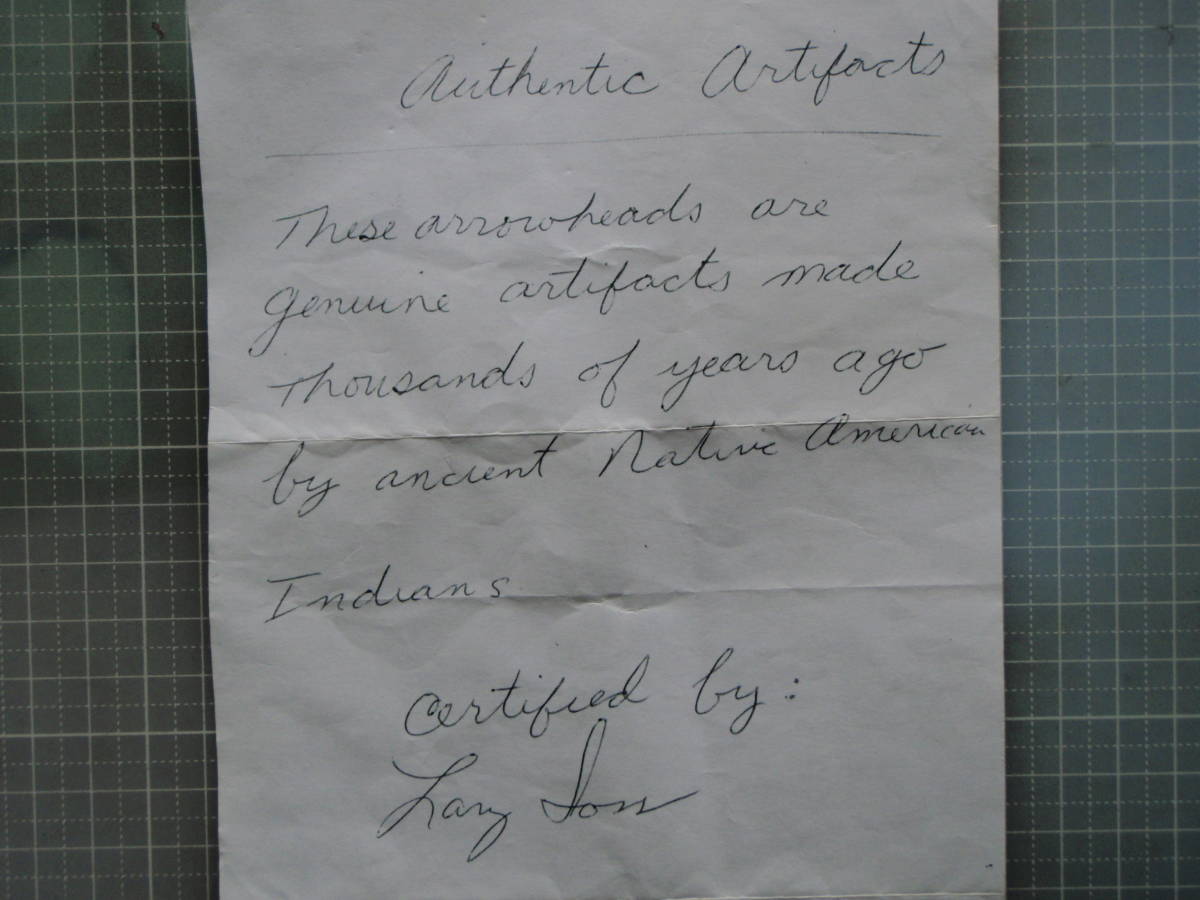 Authentic Artifacts
These arrowheads are
genuine artifacts made
thousands of years ago
by ancient Native American
Indians
Certified by: